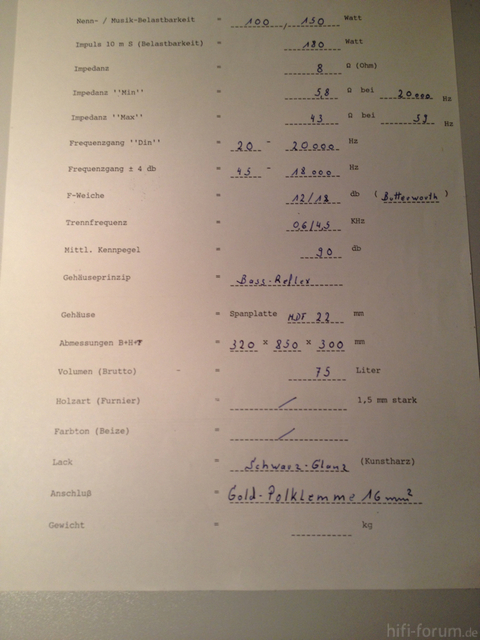 Nenn- / Musik-Belastbarkeit = 100 / 150 Watt
Impuls 10 m S (Belastbarkeit) = 180 Watt
Impedanz = 8 Ω (Ohm)
Impedanz ''Min'' = 5,8 Ω bei 20000 Hz
Impedanz ''Max'' = 43 Ω bei 59 Hz
Frequenzgang ''Din'' = 20 - 20000 Hz
Frequenzgang ± 4 db = 45 - 18000 Hz
F-Weiche = 12/18 db (Butterworth)
Trennfrequenz = 0,6/4,5 KHz
Mittl. Kennpegel = 90 db
Gehäuseprinzip = Bass-Reflex
Gehäuse = Spanplatte MDF 22 mm
Abmessungen B+H+T = 320 x 850 x 300 mm
Volumen (Brutto) - = 75 Liter
Holzart (Furnier) = / 1,5 mm stark
Farbton (Beize) = /
Lack = Schwarz-Glanz (Kunstharz)
Anschluß = Gold-Polklemme 16 mm²
Gewicht = kg
hifi-forum.de